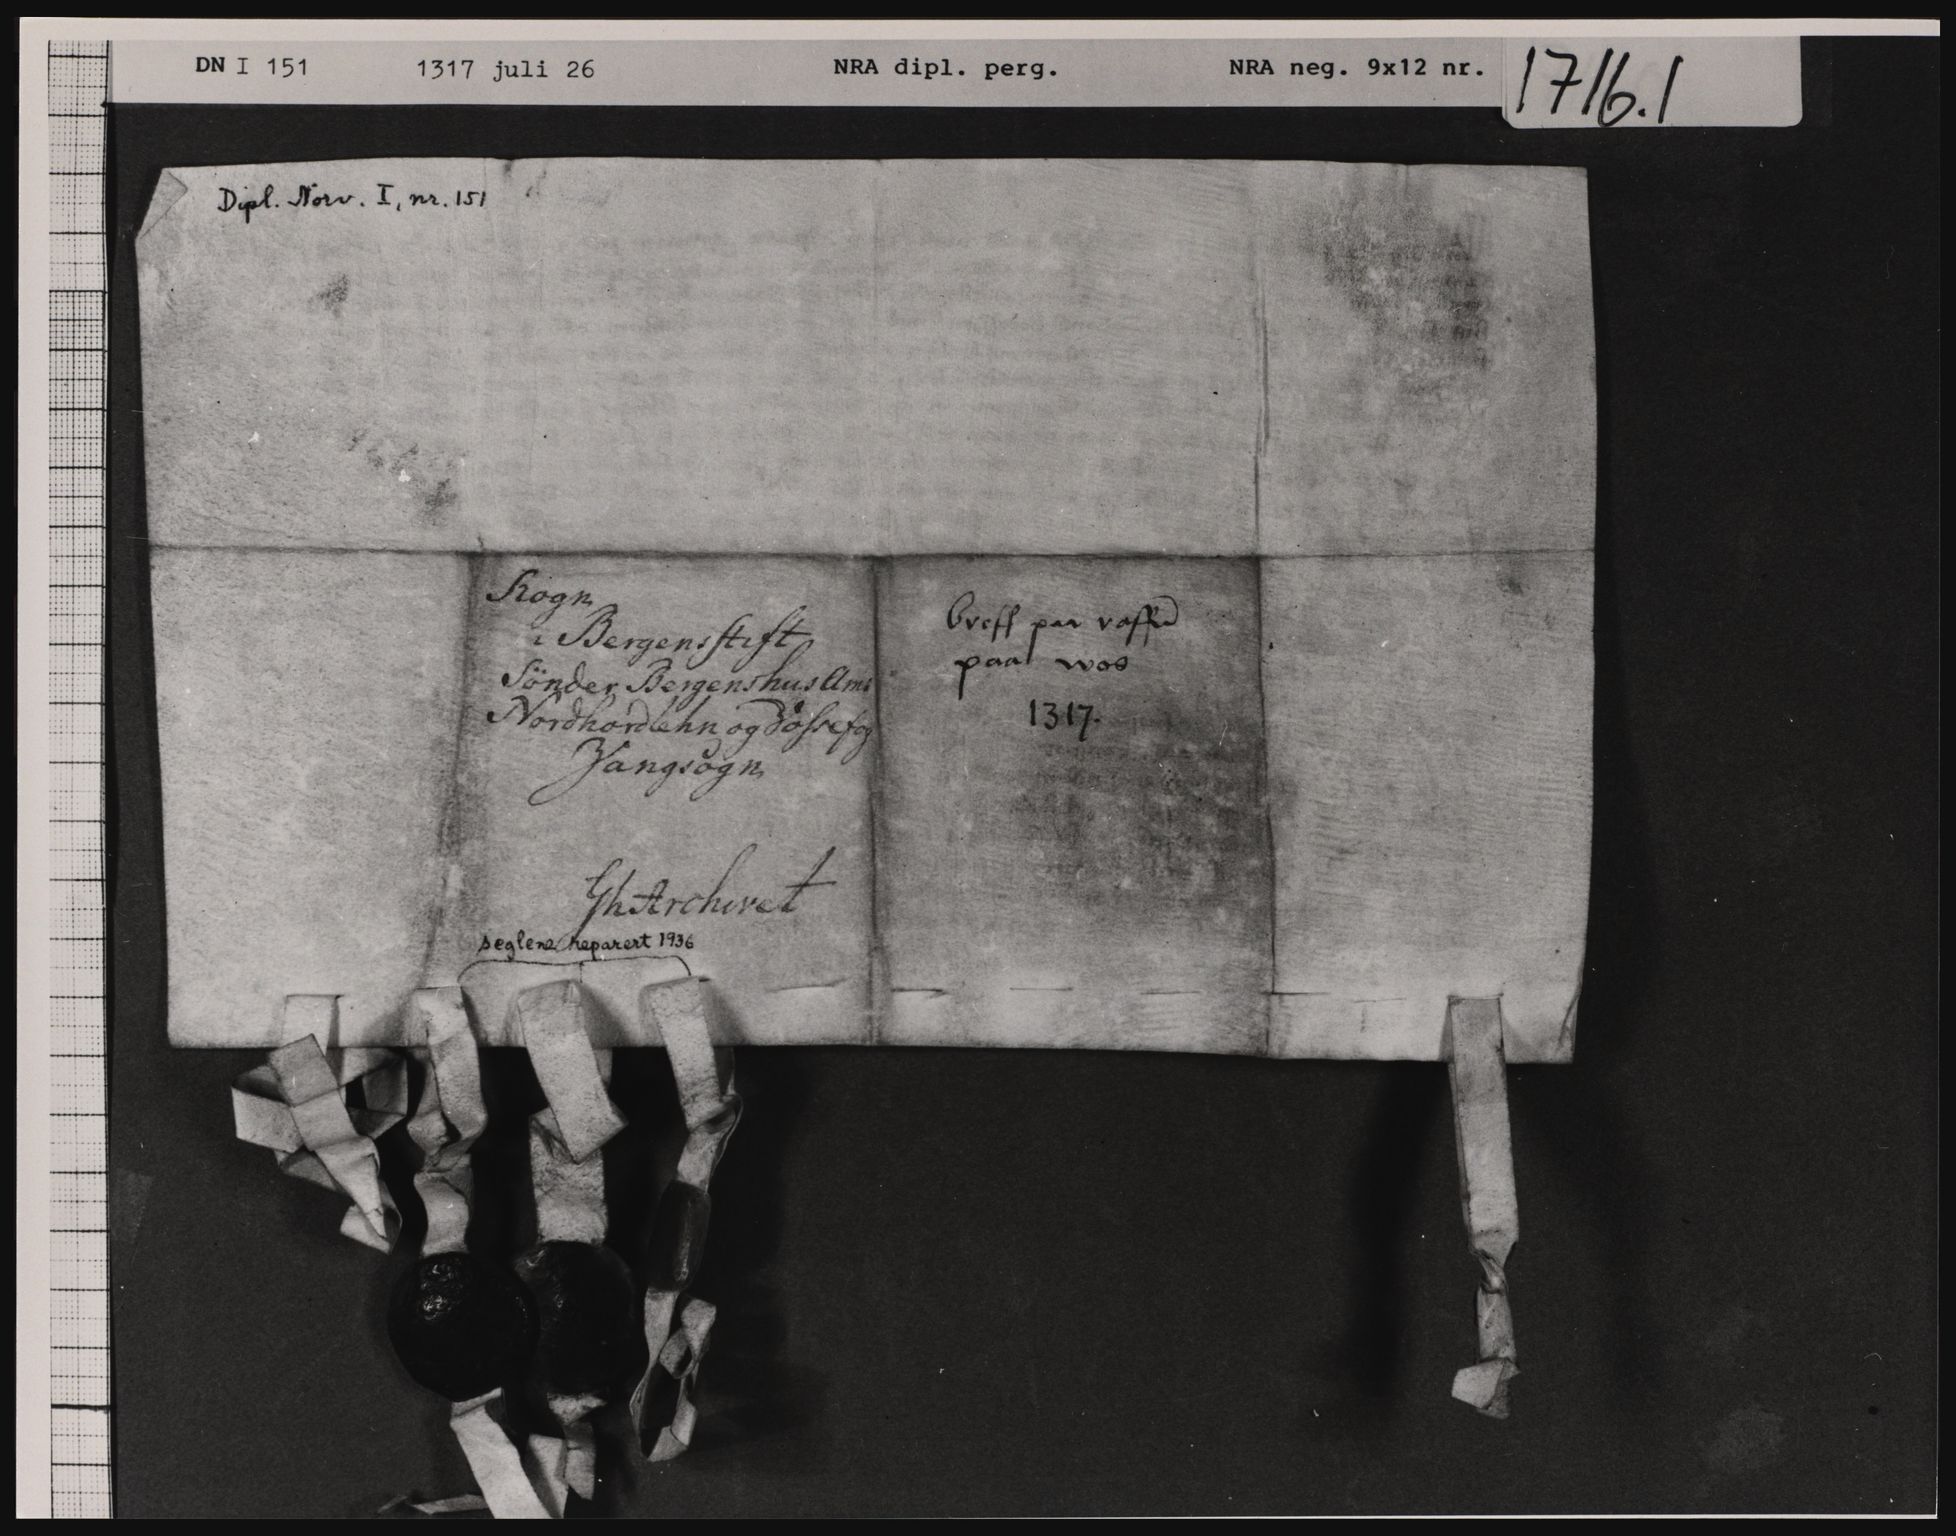 DN I 151 1317 juli 26 NRA dipl. perg. NRA neg. 9x12 nr. 1716.1
Dipl. Norv. I, nr. 151
i Bergensstift
Sönder Bergenshus Amt
Nordhordlehn og Vossefog
Vangsogn
Gh Archivet
seglene reparert 1936
breff paa
paa wos
1317.